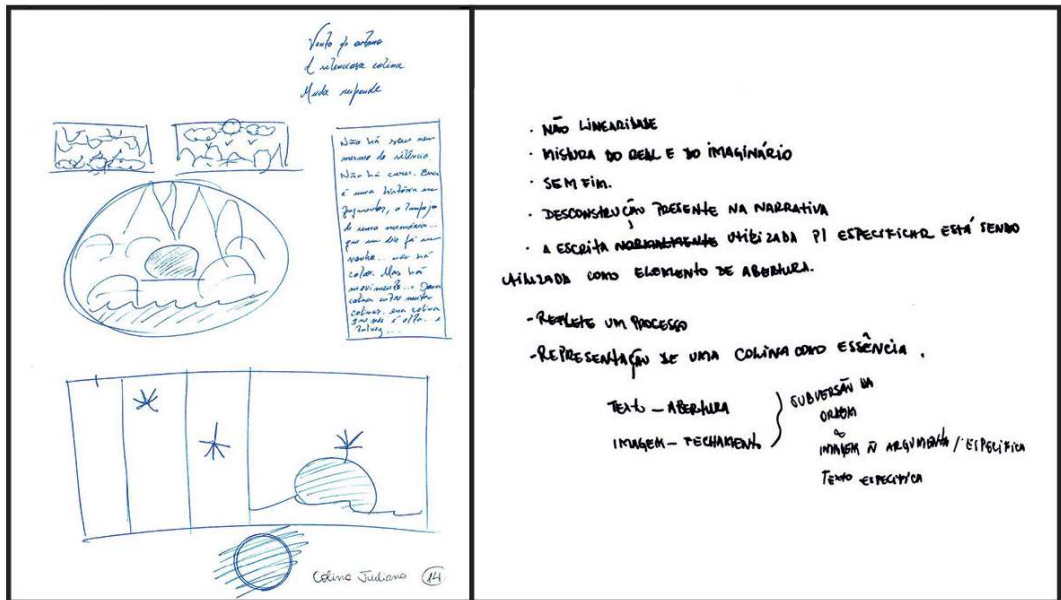 Vento de outono
A silenciosa colina
Muda responde
Não há
mesmo do silêncio
Não há cores. Essa
é uma história em
fragmentos, o
de uma memória...
que um dia foi um
não há
colo. Mas há
movimento...
colina entre muitas
colinas. essa colina
que não é alta... e
talvez...
Colina Juliano 14
· NÃO LINEARIDADE
· MISTURA DO REAL E DO IMAGINÁRIO
· SEM FIM.
· DESCONSTRUÇÃO PRESENTE NA NARRATIVA
· A ESCRITA NORMALMENTE UTILIZADA P/ ESPECIFICAR ESTÁ SENDO
UTILIZADA COMO ELEMENTO DE ABERTURA.
- REFLETE UM PROCESSO
- REPRESENTAÇÃO DE UMA COLINA COMO ESSÊNCIA.
TEXTO - ABERTURA
IMAGEM - FECHAMENTO
SUBVERSÃO DA
ORDEM
IMAGEM Ñ ARGUMENTA / ESPECIFICA
TEXTO ESPECIFICA